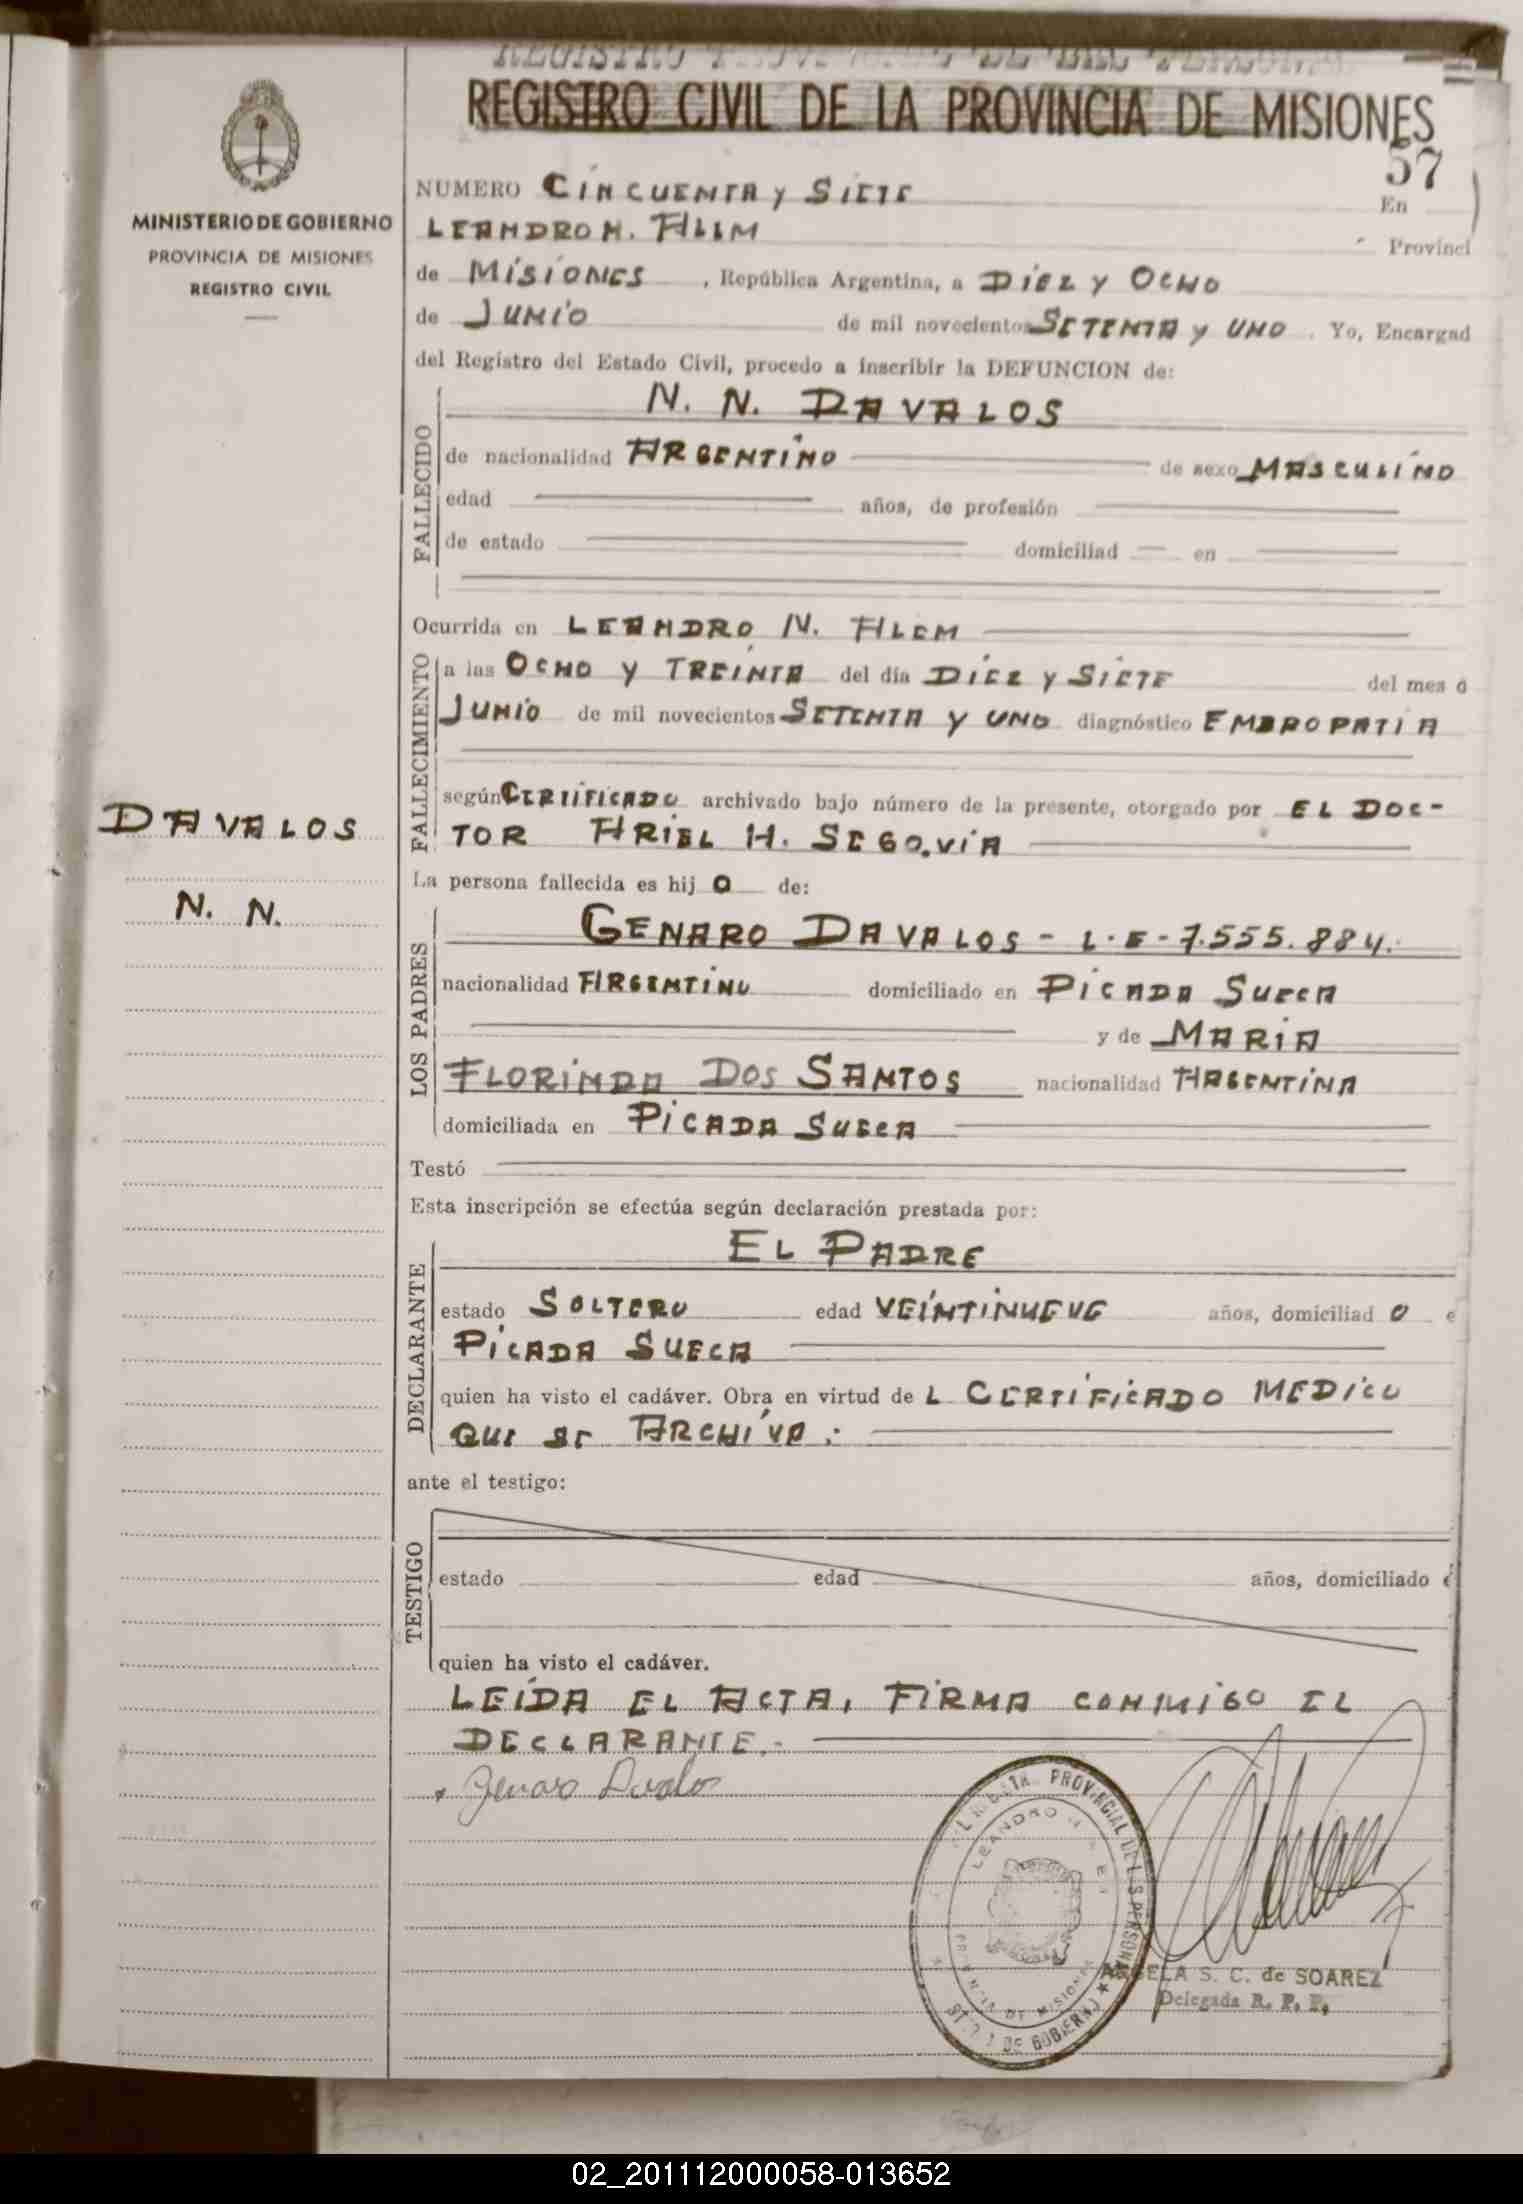 REGISTRO CIVIL DE LA PROVINCIA DE MISIONES
57
MINISTERIO DE GOBIERNO
PROVINCIA DE MISIONES
REGISTRO CIVIL
NUMERO CINCUENTA Y SIETE En
LEANDRO N. ALEM Provinci
de MISIONES, República Argentina, a DIEZ Y OCHO
de JUNIO de mil novecientos SETENTA Y UNO. Yo, Encargad
del Registro del Estado Civil, procedo a inscribir la DEFUNCION de:
FALLECIDO
N. N. DAVALOS
de nacionalidad ARGENTINO de sexo MASCULINO
edad años, de profesión
de estado domiciliad en
Ocurrida en LEANDRO N. ALEM
FALLECIMIENTO
a las OCHO Y TREINTA del día DIEZ Y SIETE del mes d
JUNIO de mil novecientos SETENTA Y UNO diagnóstico EMBROPATIA
según CERTIFICADO archivado bajo número de la presente, otorgado por EL DOC-
TOR ARIEL H. SEGOVIA
DAVALOS
N. N.
La persona fallecida es hij O de:
LOS PADRES
GENARO DAVALOS - L.E - 7.555.884.
nacionalidad ARGENTINO domiciliado en PICADA SUECA
y de MARIA
FLORINDA DOS SANTOS nacionalidad ARGENTINA
domiciliada en PICADA SUECA
Testó
Esta inscripción se efectúa según declaración prestada por:
DECLARANTE
EL PADRE
estado SOLTERO edad VEINTINUEVE años, domiciliad O e
PICADA SUECA
quien ha visto el cadáver. Obra en virtud de L CERTIFICADO MEDICO
QUE SE ARCHIVA.-
ante el testigo:
TESTIGO
estado edad años, domiciliado e
quien ha visto el cadáver.
LEIDA EL ACTA, FIRMA CONMIGO EL
DECLARANTE.-
Genaro Davalos
PROVINCIAL DE LAS PERSONAS
LEANDRO N. ALEM
PROVINCIA DE MISIONES
DE GOBIERNO
ANGELA S. C. de SOAREZ
Delegada R. P. P.
02_201112000058-013652